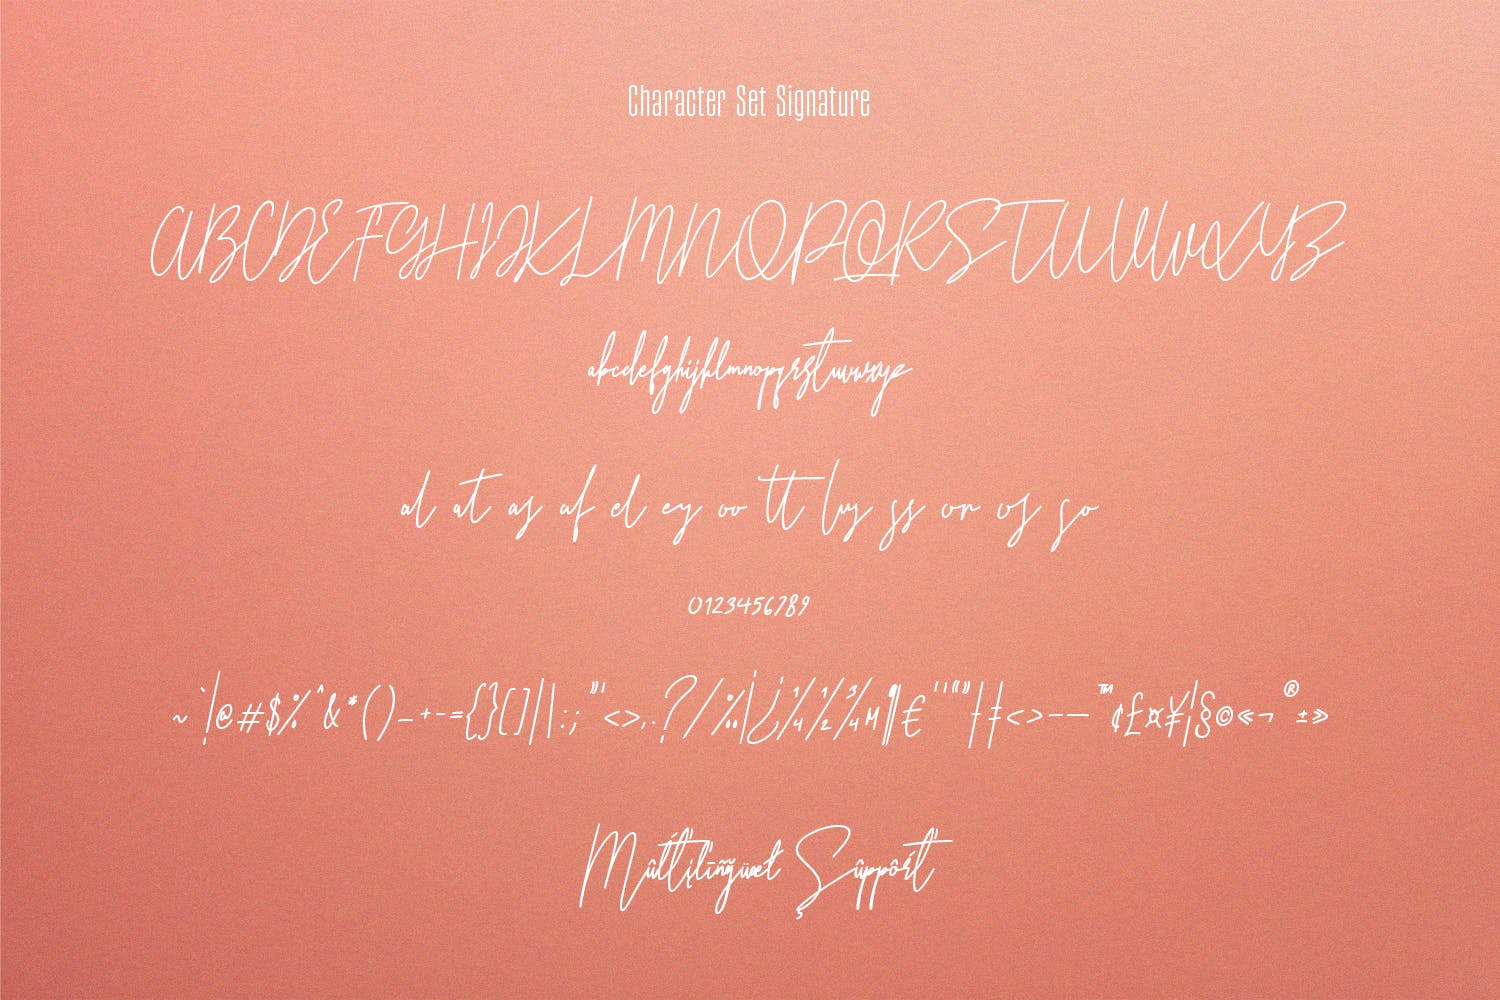 Character Set Signature
ABCDEFGHIJKLMNOPQRSTUVWXYZ
abcdefghijklmnopqrstuvwxyz
al at as af el ey oo tt ly ss or os so
0123456789
~`!@#$%^&*()_+-={}[]||:;"'<>,.?/‰¡¿¼½¾µ¶€''""†‡<>–—™¢£¤¥¦§©«¬®±»
Mûltįlīñğüæł Şûppôrť